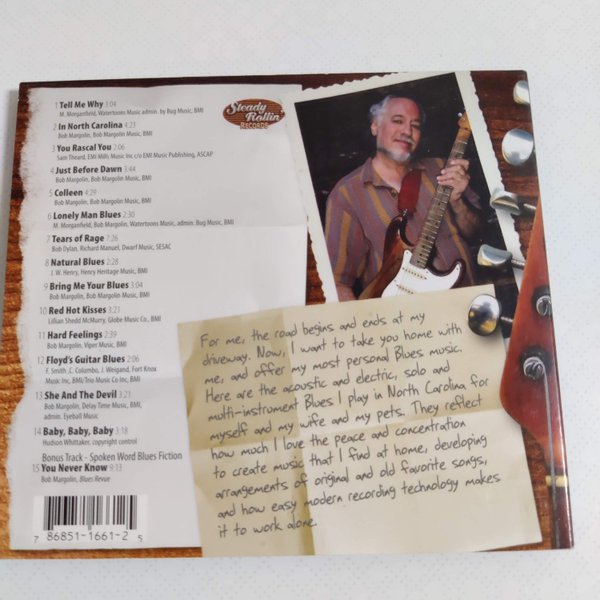 1 Tell Me Why 3:04
M. Morganfield, Watertoons Music admin. by Bug Music, BMI
2 In North Carolina 4:23
Bob Margolin, Bob Margolin Music, BMI
3 You Rascal You 2:06
Sam Theard, EMI Mills Music Inc c/o EMI Music Publishing, ASCAP
4 Just Before Dawn 3:44
Bob Margolin, Bob Margolin Music, BMI
5 Colleen 4:29
Bob Margolin, Bob Margolin Music, BMI
6 Lonely Man Blues 2:30
M. Morganfield, Bob Margolin, Watertoons Music, admin. Bug Music, BMI
7 Tears of Rage 7:26
Bob Dylan, Richard Manuel, Dwarf Music, SESAC
8 Natural Blues 2:28
J. W. Henry, Henry Heritage Music, BMI
9 Bring Me Your Blues 3:04
Bob Margolin, Bob Margolin Music, BMI
10 Red Hot Kisses 3:21
Lillian Shedd McMurry, Globe Music Co., BMI
11 Hard Feelings 2:39
Bob Margolin, Viper Music, BMI
12 Floyd's Guitar Blues 2:06
F. Smith ,C. Columbo, J. Weigand, Fort Knox
Music Inc, BMI/Trio Music Co Inc, BMI
13 She And The Devil 3:21
Bob Margolin, Delay Time Music, BMI,
admin. Eyeball Music
14 Baby, Baby, Baby 3:18
Hudson Whittaker, copyright control
Bonus Track - Spoken Word Blues Fiction
15 You Never Know 9:13
Bob Margolin, Blues Revue
7 86851-1661-2 5
Steady
Rollin'
RECORDS
For me, the road begins and ends at my
driveway. Now, I want to take you home with
me, and offer my most personal Blues music.
Here are the acoustic and electric, solo and
multi-instrument Blues I play in North Carolina for
myself and my wife and my pets. They reflect
how much I love the peace and concentration
to create music that I find at home, developing
arrangements of original and old favorite songs,
and how easy modern recording technology makes
it to work alone.